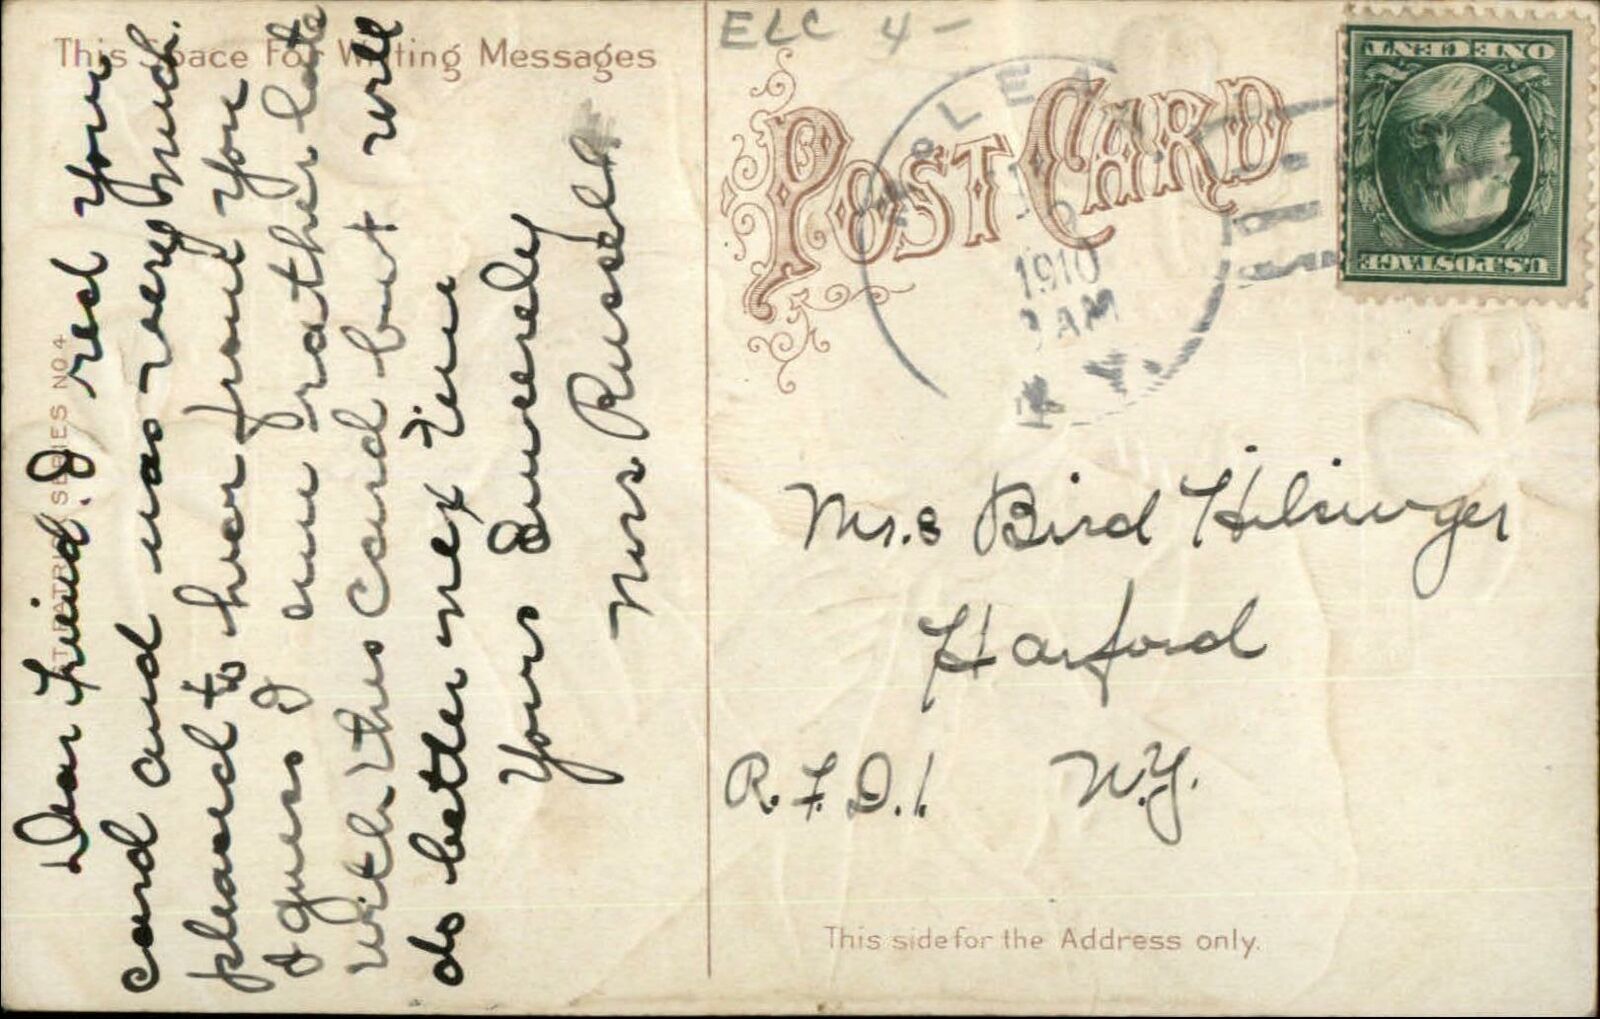 This Space For Writing Messages
ST. PATRICK SERIES NO 4
Dear Freind. I recd your
card and was very much.
pleased to hear from you
I guess I am rather late
with this card but will
do better nex time
Yours Sincerely
Mrs Russell
ELC 4-
POST CARD
1910
AM
N.Y.
U.S. POSTAGE
ONE CENT
Mrs Bird Hilsinger
Harford
R.F.D.1. N.Y.
This side for the Address only.